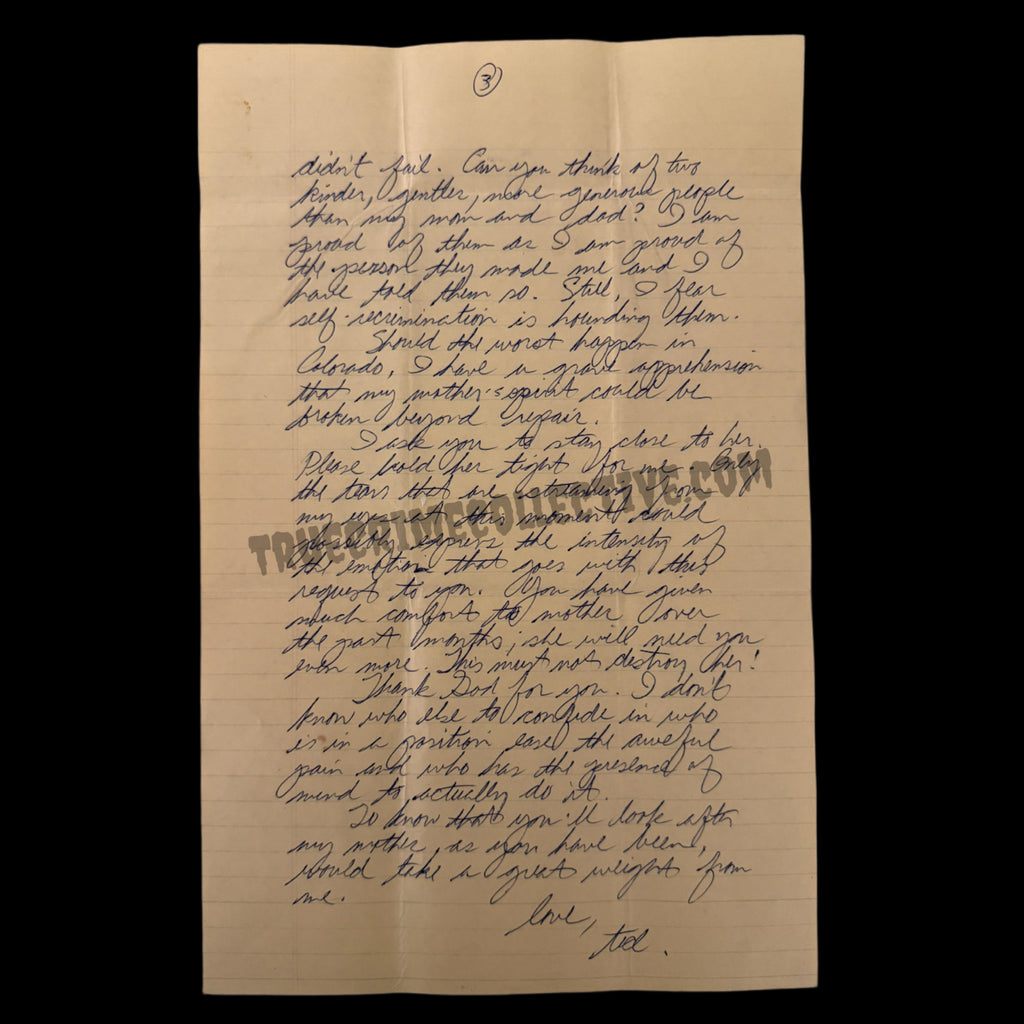 3
didn't fail. Can you think of two
kinder, gentler, more generous people
than my mom and dad? I am
proud of them as I am proud of
the person they made me and I
have told them so. Still, I fear
self-recrimination is hounding them.
Should the worst happen in
Colorado, I have a grave apprehension
that my mother's spirit could be
broken beyond repair.
I ask you to stay close to her.
Please hold her tight for me. Only
the tears that are streaming from
my eyes at this moment could
possibly express the intensity of
the emotion that goes with this
request to you. You have given
much comfort to mother over
the past months; she will need you
even more. This must not destroy her!
Thank God for you. I don't
know who else to confide in who
is in a position ease the aweful
pain and who has the presence of
mind to actually do it.
To know that you'll look after
my mother, as you have been,
would take a great weight from
me.
love,
ted.
TRUECRIMECOLLECTIVE.COM